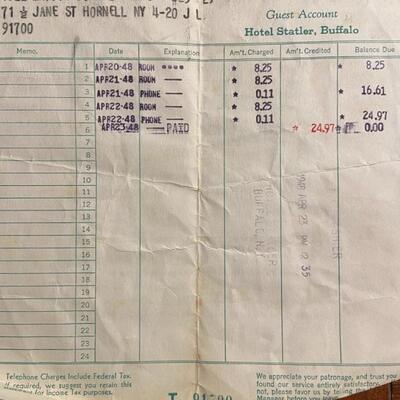 71 ½ JANE ST HORNELL NY 4-20 J L
91700
Guest Account
Hotel Statler, Buffalo
Memo. Date Explanation Am't. Charged Am't. Credited Balance Due
1 APR20-48 ROOM **** * 8.25 * 8.25
2 APR21-48 ROOM — * 8.25
3 APR21-48 PHONE — * 0.11 * 16.61
4 APR22-48 ROOM — * 8.25
5 APR22-48 PHONE — * 0.11 * 24.97
6 APR23-48 — PAID * 24.97 0.00
7
8
9
10
11
12
13
14
15
16
17
18
19
20
21
22
23
24
1948 APR 23 PM 12 35
BUFFALO, N.Y.
Telephone Charges Include Federal Tax.
If required, we suggest you retain this
for Income Tax purposes.
We appreciate your patronage, and trust you
found our service entirely satisfactory.
not, please favor us by telling the
Manager before you leave.